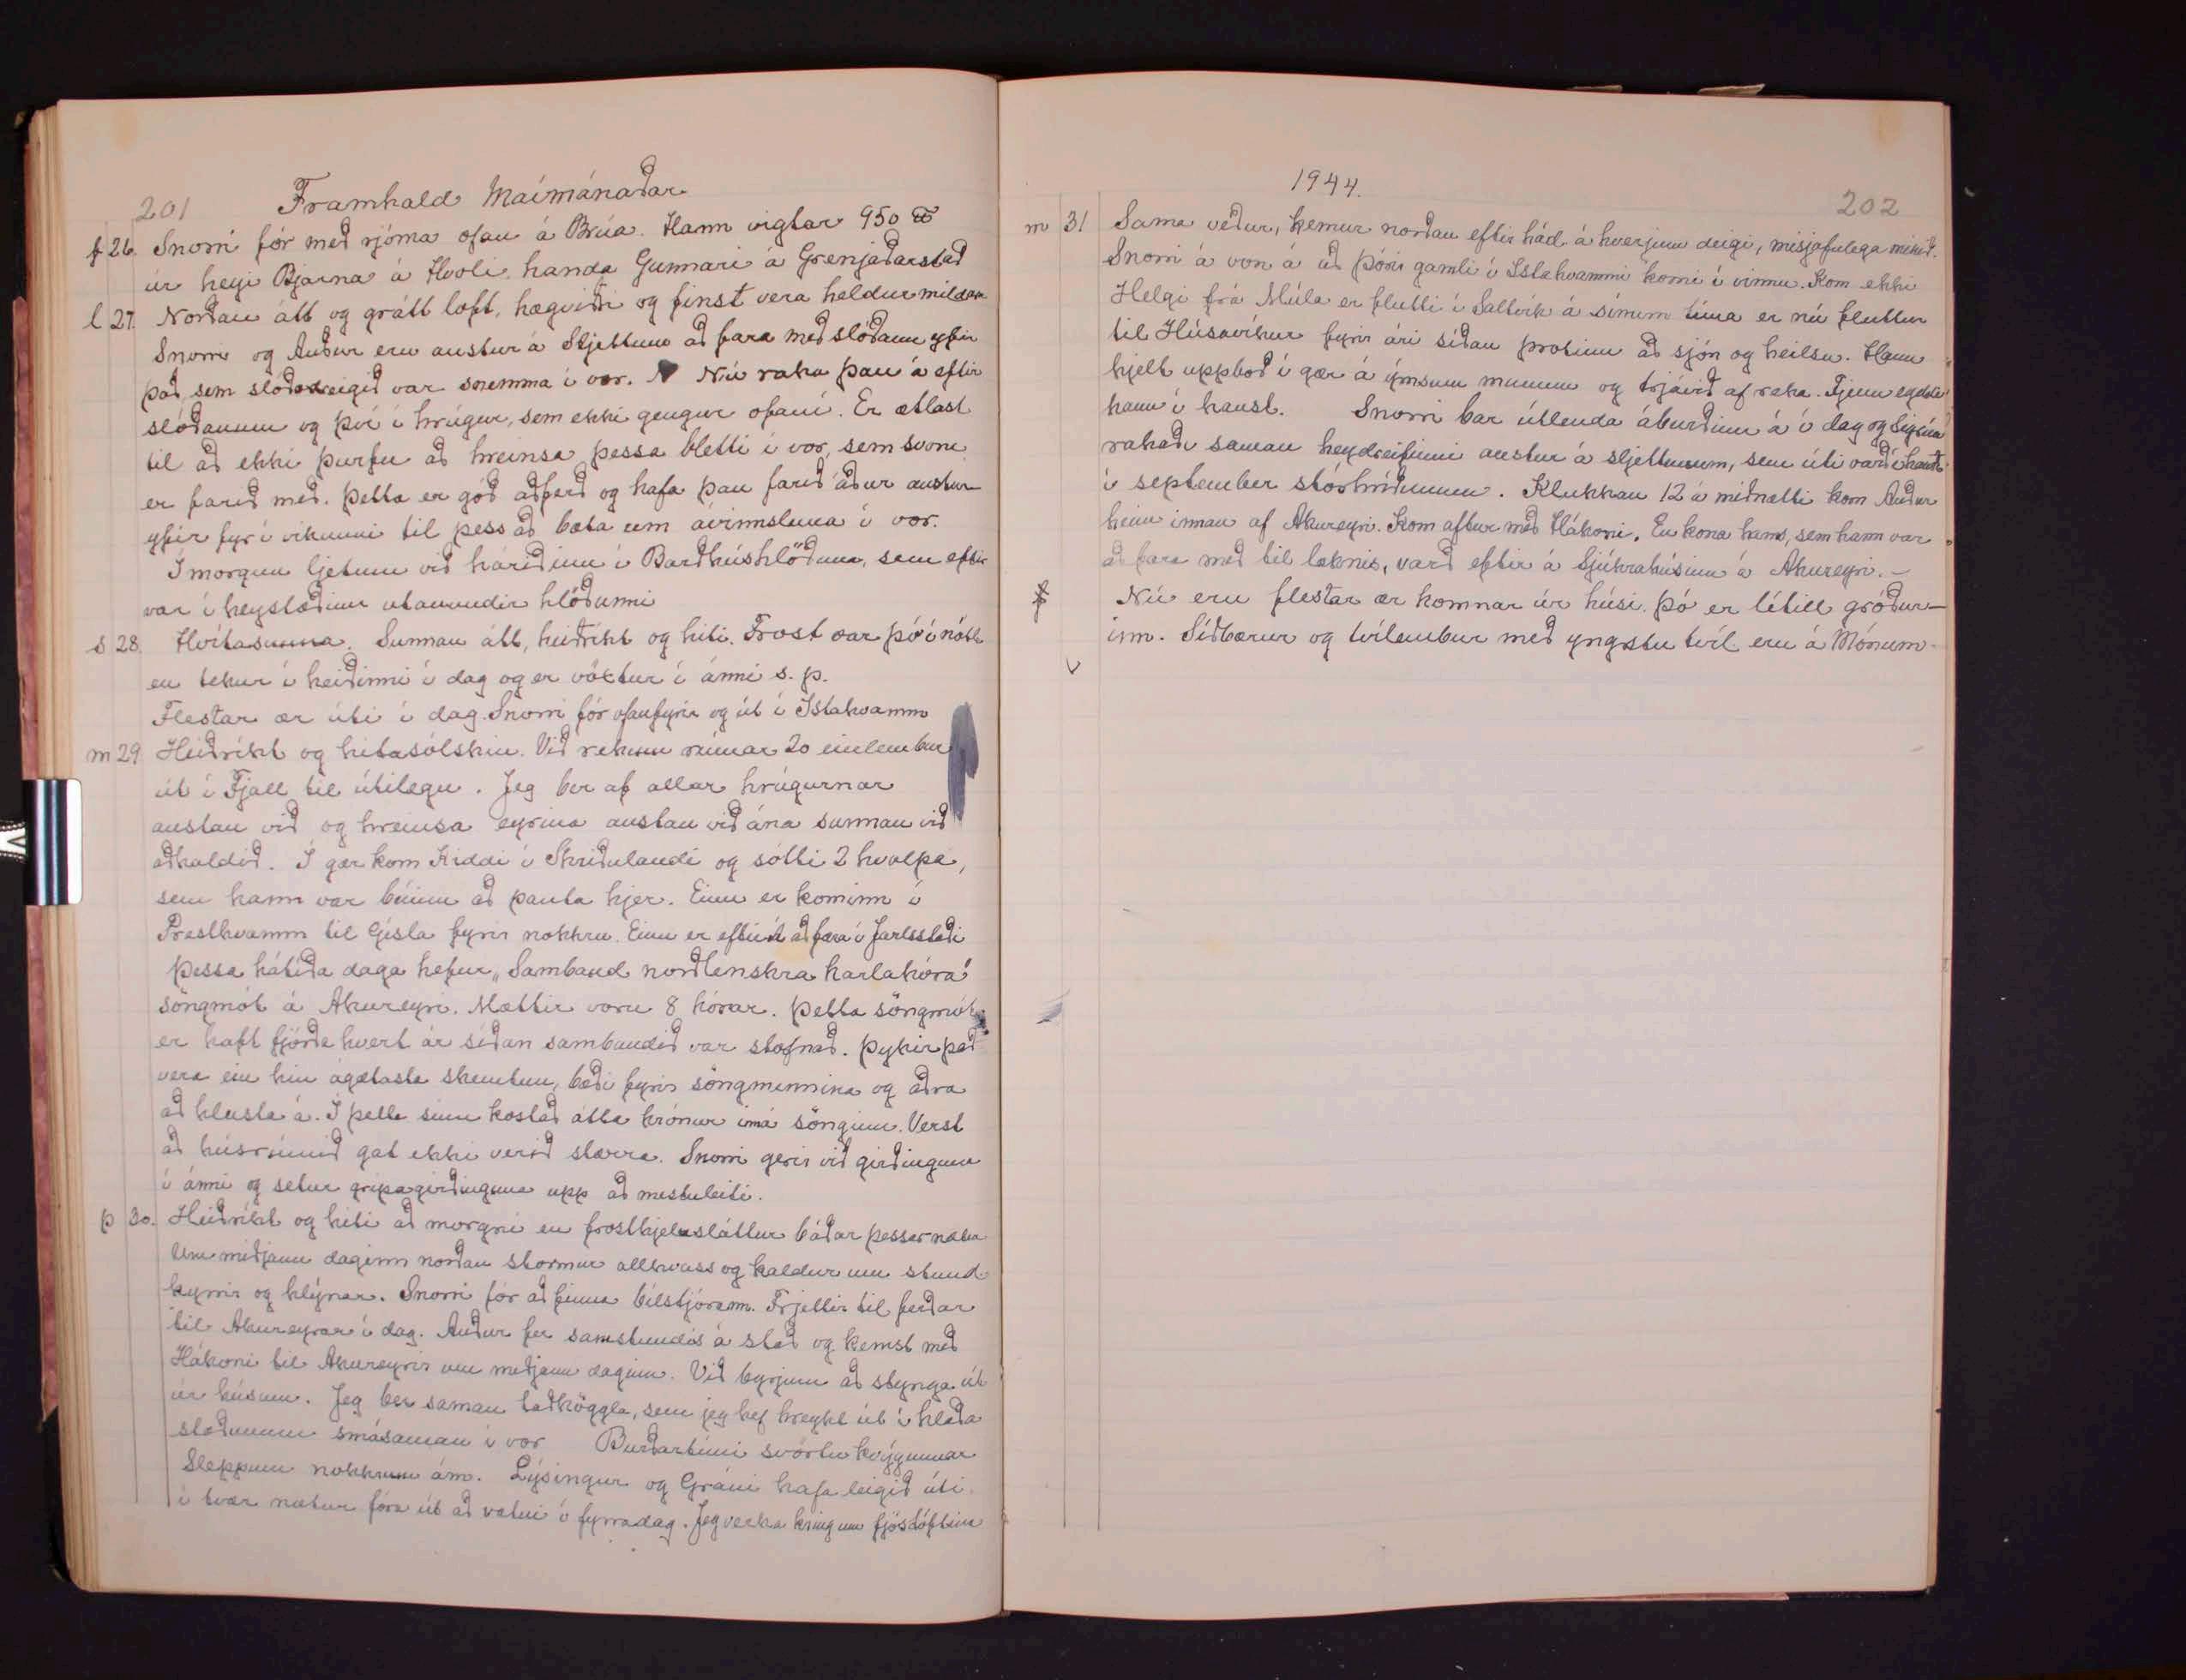 201 Framhald Maímánaðar
f 26. Snorri fór með rjóma ofan á Brúa. Hann vigtar 950 ℔
úr heyi Bjarna á Hvoli handa Gunnari á Grenjaðarstað
l 27. Norðan átt og grátt loft, hægviðri og finst vera heldur mildara
Snorri og Auður eru austur á Sljettum að fara með slóðann yfir
það, sem slóðadreigið var snemma í vor. Nú raka þau á eftir
slóðanum og því í hrúgur, sem ekki gengur ofaní. Er ætlast
til að ekki þurfu að hreinsa þessa bletti í vor, sem svona
er farið með. Þetta er góð aðferð og hafa þau farið áður austur
yfir fyr í vikunni til þess að bæta um ávinnsluna í vor.
Í morgun ljetum við háið inn í Barðhúshlöðuna, sem eftir
var í heystæðinu utanundir hlöðunni
s 28. Hvítasunna. Sunnan átt, heiðríkt og hiti. Frost var þó í nótt
en tekur í heiðinni í dag og er vöxtur í ánni s. p.
Flestar ær úti í dag. Snorri fór ofanfyrir og út í Ístakvamm
m 29 Heiðríkt og hitasólskin. Við rekum rúmar 20 einlembur
út í Fjall til útilegu. Jeg ber af allar hrúgurnar
austan við og hreinsa eyrina austan við ána sunnan við
aðhaldið. Í gær kom Kiddi í Skriðulandi og sótti 2 hvolpa,
sem hann var búinn að panta hjer. Einn er kominn í
Presthvamm til Gísla fyrir nokkru. Einn er eftir að fara í Jarlsstaði
Þessa hátíða daga hefur „Samband norðlenskra karlakóra"
söngmót á Akureyri. Mættir voru 8 kórar. Þetta söngmót
er haft fjórða hvert ár síðan sambandið var stofnað. Þykir það
vera ein hin ágætasta skemtun, bæði fyrir söngmennina og aðra
að hlusta á. Í þetta sinn kostað átta krónur inná sönginn. Verst
að húsrúmið gat ekki verið stærra. Snorri gerir við girðinguna
í ánni og setur gripagirðinguna upp að mestuleiti.
þ 30. Heiðríkt og hiti að morgni en frosthjelusláttur báðar þessar nætur
Um miðjann daginn norðan stormur allhvass og kaldur um stund
kyrrir og hlýnar. Snorri fór að finna bílstjórann. Frjettir til ferðar
til Akureyrar í dag. Auður fer samstundis á stað og kemst með
Hákoni til Akureyrir um miðjann daginn. Við byrjum að stynga út
úr húsum. Jeg ber saman taðköggla, sem jeg hef hreykt út í hlaða
stæðunum smásaman í vor Burðartími svörtu kvýgunnar
Sleppum nokkrum ám. Lýsingur og Gráni hafa leigið úti
í tvær nætur fóru út að vatni í fyrradag. Jeg verka kringum fjóstóftina
1944. 202
m 31 Sama veður, kemur norðan eftir hád. á hverjum deigi, misjafnlega mikið.
Snorri á von á að Þórir gamli í Ístakvammi komi í vinnu. Kom ekki
Helgi frá Múla er flutti í Saltvík á sínum tíma er nú fluttur
til Húsavíkur fyrir ári síðan protinn að sjón og heilsu. Hann
hjelt uppboð í gær á ýmsum munum og trjávið af reka. Fjenu eyddi
hann í haust. Snorri bar útlenda áburðinn á í dag og Sigrún
rakaði saman heydreifinni austur á sljettunum, sem úti varð í haust
í september stórhríðunum. Klukkan 12 á miðnætti kom Auður
heim innan af Akureyri. Kom aftur með Hákoni. En kona hans, sem hann var
að fara með til læknis, varð eftir á Sjúkrahúsinu á Akureyri. –
Nú eru flestar ær komnar úr húsi. Þó er lítill gróður-
inn. Síðbærur og tvílembur með yngstu tvíl. eru á Mónum.